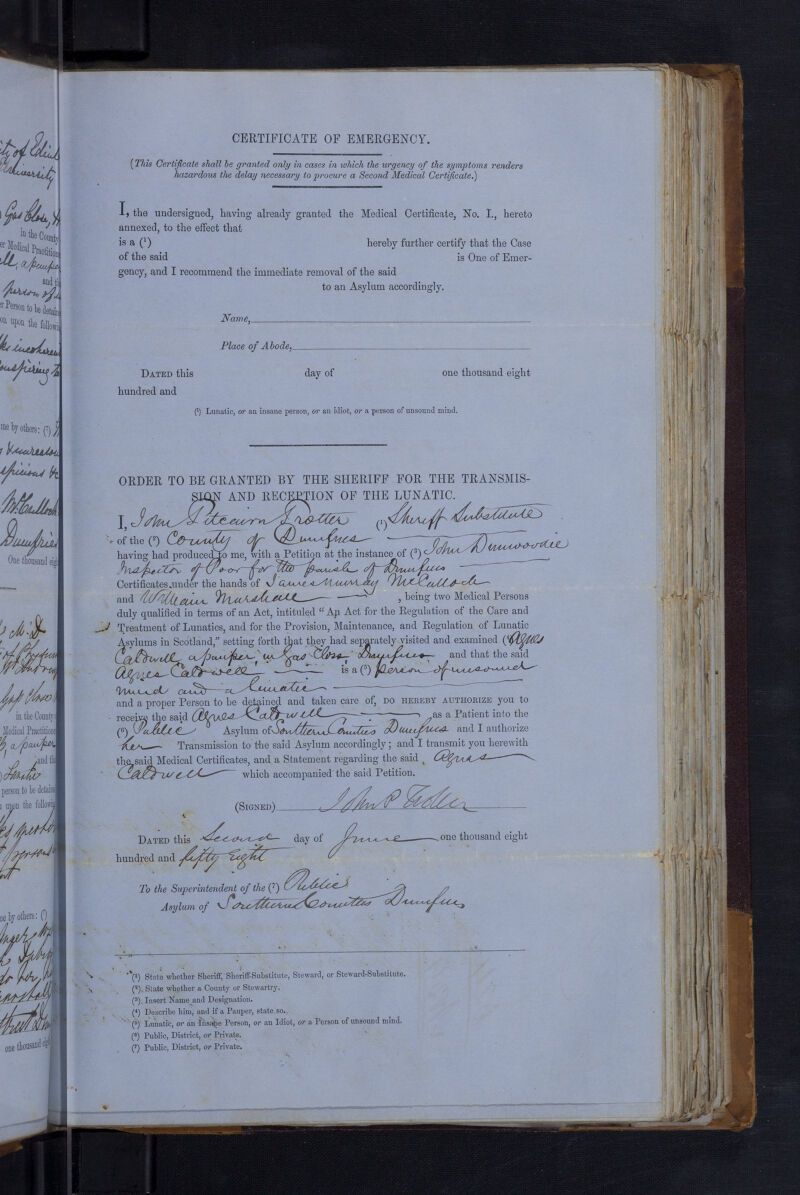 CERTIFICATE OF EMERGENCY.
(This Certificate shall be granted only in cases in which the urgency of the symptoms renders
hazardous the delay necessary to procure a Second Medical Certificate.)
I, the undersigned, having already granted the Medical Certificate, No. I., hereto
annexed, to the effect that
is a (¹) hereby further certify that the Case
of the said is One of Emer-
gency, and I recommend the immediate removal of the said
to an Asylum accordingly.
Name,
Place of Abode,
DATED this day of one thousand eight
hundred and
(¹) Lunatic, or an insane person, or an idiot, or a person of unsound mind.
ORDER TO BE GRANTED BY THE SHERIFF FOR THE TRANSMIS-
SION AND RECEPTION OF THE LUNATIC.
I, John Pitcairn Trotter (¹) Sheriff Substitute
of the (²) County of Dumfries
having had produced to me, with a Petition at the instance of (³) John Dunwoodie
Inspector of Poor for the parish of Dumfries
Certificates under the hands of James Murray McCulloch
and William Marshall, being two Medical Persons
duly qualified in terms of an Act, intituled "An Act for the Regulation of the Care and
Treatment of Lunatics, and for the Provision, Maintenance, and Regulation of Lunatic
Asylums in Scotland," setting forth that they had separately visited and examined (⁴) Agnes
Caldwell, a pauper, in Gas Closs, Dumfries and that the said
Agnes Caldwell is a (⁵) person of unsound
mind and a lunatic
and a proper Person to be detained and taken care of, DO HEREBY AUTHORIZE you to
receive the said Agnes Caldwell as a Patient into the
(⁶) Public Asylum of Southern Counties Dumfries and I authorize
her Transmission to the said Asylum accordingly; and I transmit you herewith
the said Medical Certificates, and a Statement regarding the said Agnes
Caldwell which accompanied the said Petition.
(SIGNED) John P Trotter
DATED this Second day of June one thousand eight
hundred and fifty eight
To the Superintendent of the (⁷) Public
Asylum of Southern Counties Dumfries
(¹) State whether Sheriff, Sheriff-Substitute, Steward, or Steward-Substitute.
(²) State whether a County or Stewartry.
(³) Insert Name and Designation.
(⁴) Describe him, and if a Pauper, state so.
(⁵) Lunatic, or an Insane Person, or an Idiot, or a Person of unsound mind.
(⁶) Public, District, or Private.
(⁷) Public, District, or Private.